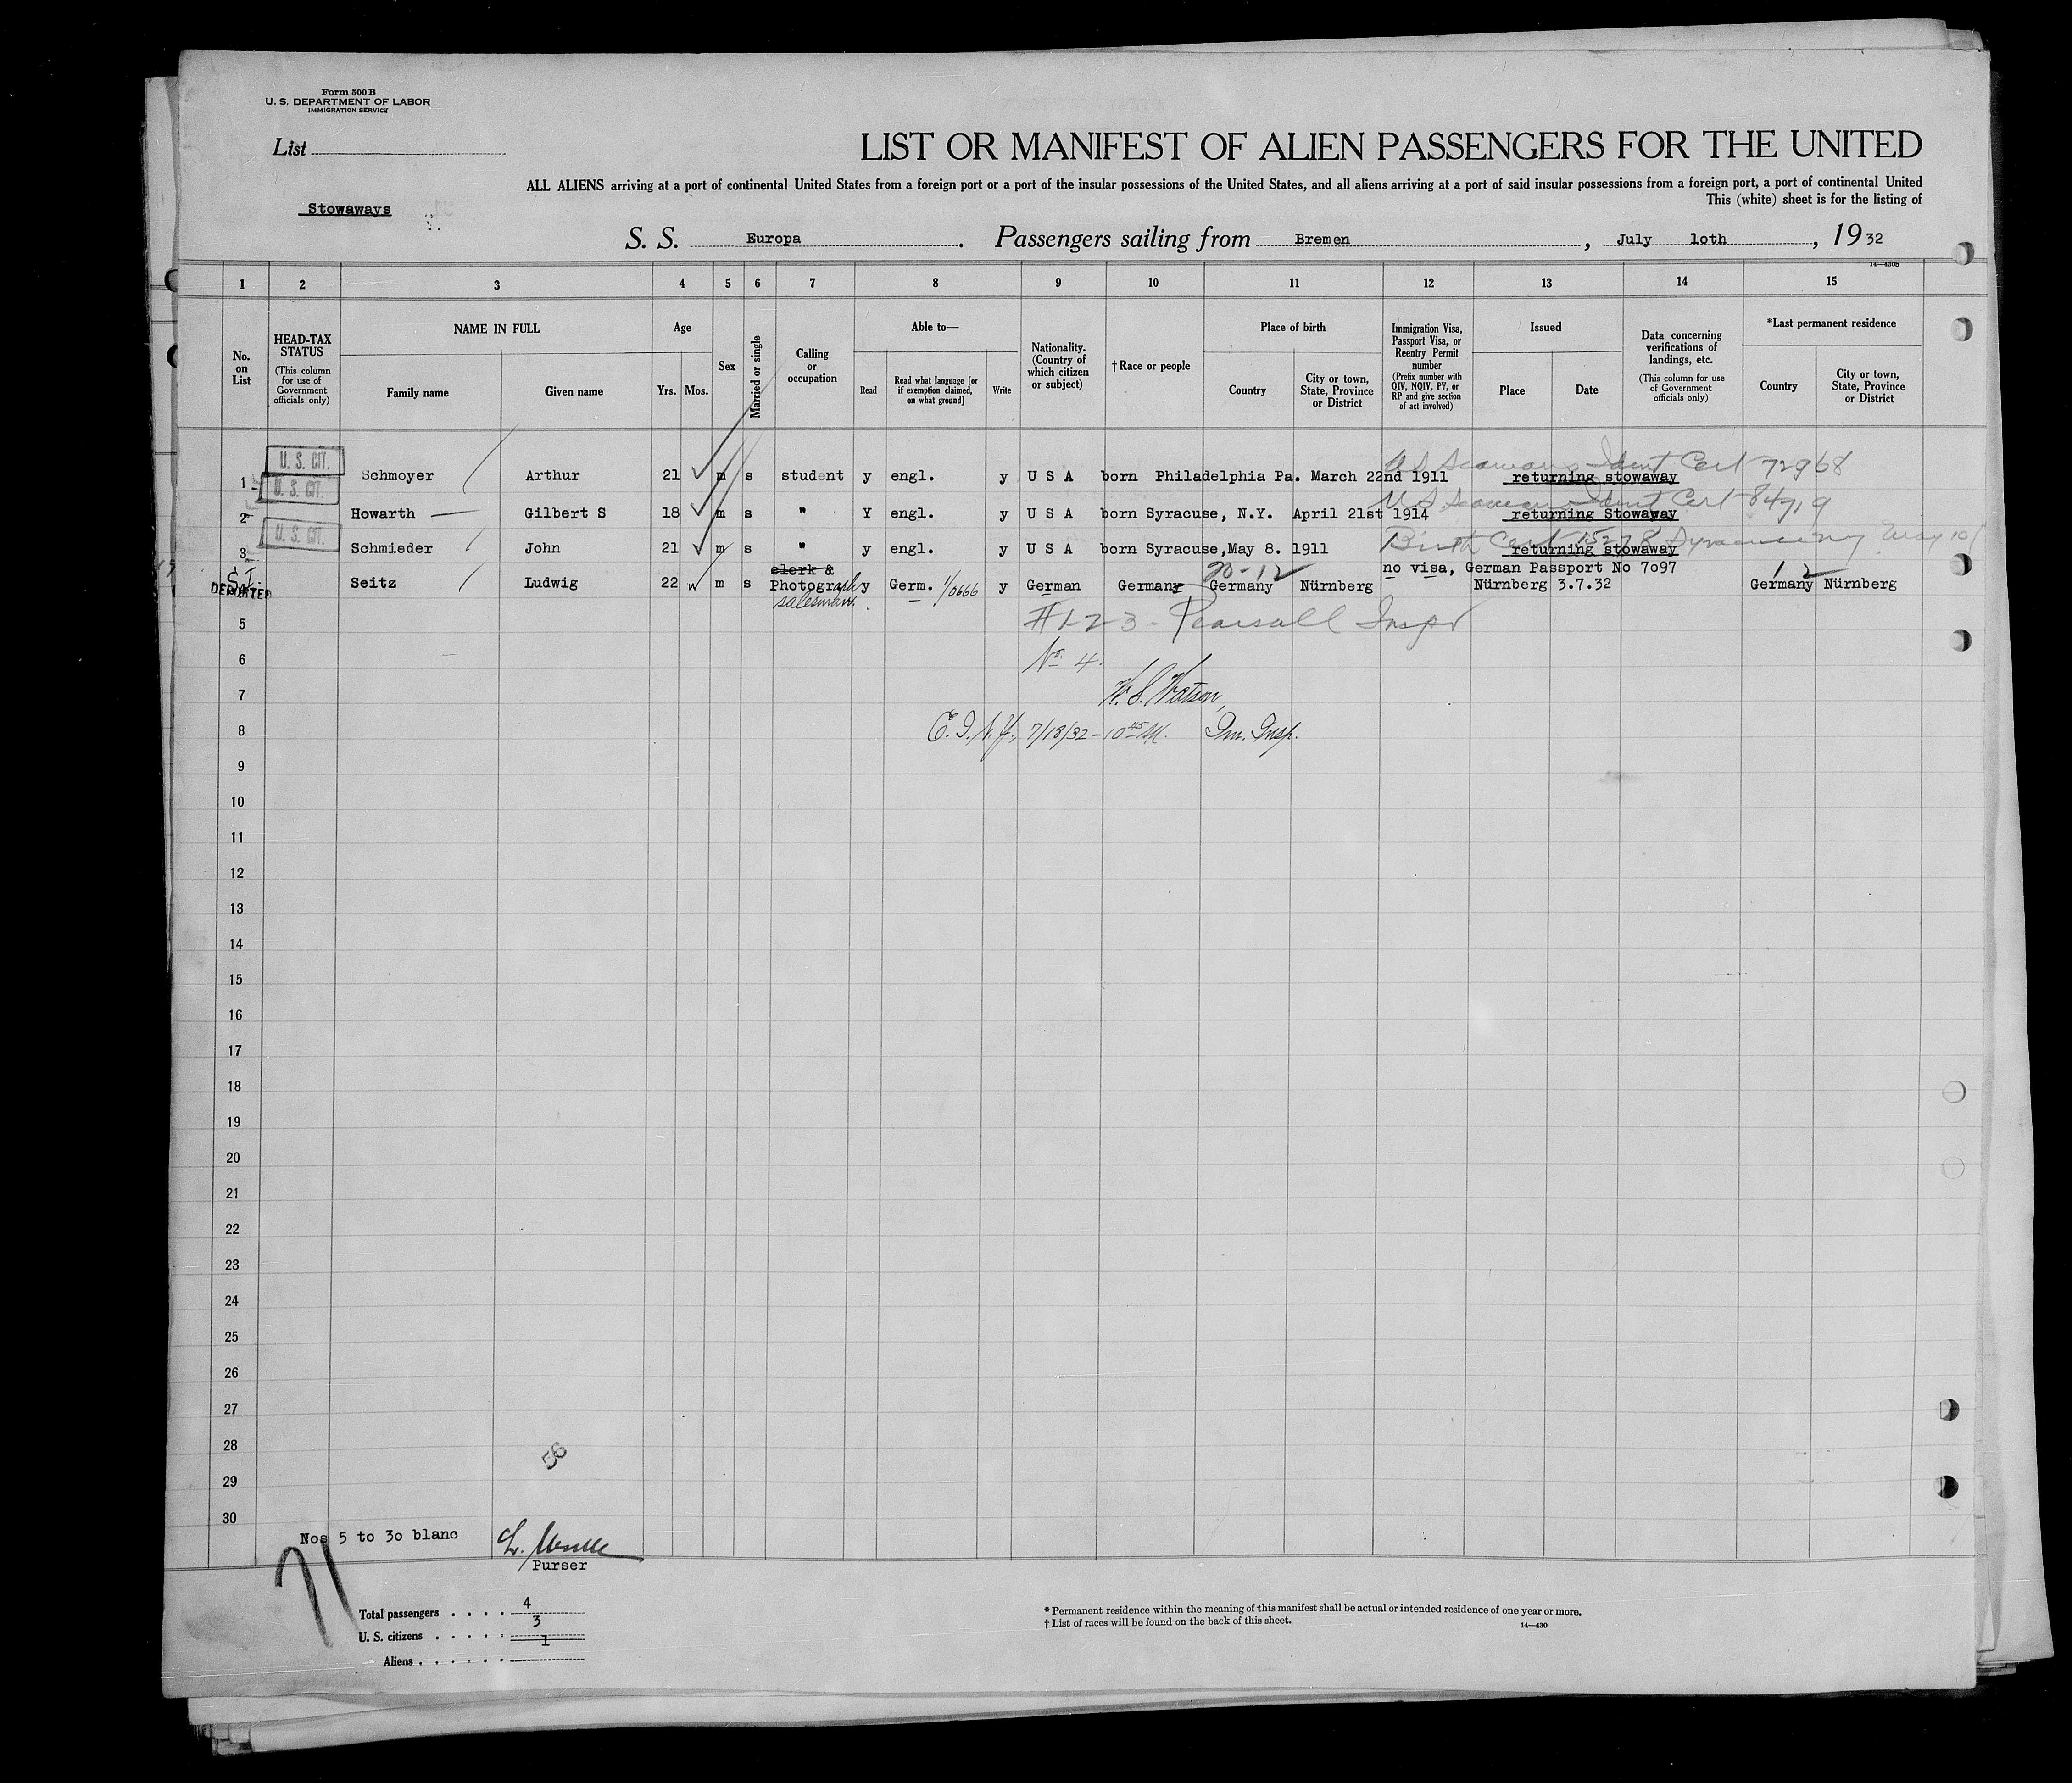 Form 500 B
U. S. DEPARTMENT OF LABOR
IMMIGRATION SERVICE
List
LIST OR MANIFEST OF ALIEN PASSENGERS FOR THE UNITED
ALL ALIENS arriving at a port of continental United States from a foreign port or a port of the insular possessions of the United States, and all aliens arriving at a port of said insular possessions from a foreign port, a port of continental United
This (white) sheet is for the listing of
Stowaways
S. S. Europa. Passengers sailing from Bremen, July 1oth, 1932
14—430b
1 2 3 4 5 6 7 8 9 10 11 12 13 14 15
No. on List
HEAD-TAX STATUS
(This column for use of Government officials only)
NAME IN FULL
Family name
Given name
Age
Yrs.
Mos.
Sex
Married or single
Calling or occupation
Able to—
Read
Read what language [or if exemption claimed, on what ground]
Write
Nationality. (Country of which citizen or subject)
† Race or people
Place of birth
Country
City or town, State, Province or District
Immigration Visa, Passport Visa, or Reentry Permit number
(Prefix number with QIV, NQIV, PV, or RP and give section of act involved)
Issued
Place
Date
Data concerning verifications of landings, etc.
(This column for use of Government officials only)
*Last permanent residence
Country
City or town, State, Province or District
U. S. CIT.
US Seamans Ident Cert 72968
1 Schmoyer Arthur 21 m s student y engl. y U S A born Philadelphia Pa. March 22nd 1911 returning stowaway
U. S. CIT.
US Seamans Ident Cert 84719
2 Howarth Gilbert S 18 m s " Y engl. y U S A born Syracuse, N.Y. April 21st 1914 returning Stowaway
U. S. CIT.
Birth Cert 15278 Syracuse ny May 10/
3 Schmieder John 21 m s " y engl. y U S A born Syracuse,May 8. 1911 returning stowaway
clerk &
20-12
no visa, German Passport No 7o97
1 2
S.I.
DEPORTED
4 Seitz Ludwig 22 m s Photograph y Germ. 1/0666 y German Germany Germany Nürnberg Nürnberg 3.7.32 Germany Nürnberg
salesman.
5
#1-2-3- Pearsall Inspr
6
No. 4.
7
W. S. Watson,
8
E. I. N.Y., 7/18/32 – 10 45 M. Im. Insp.
9
10
11
12
13
14
15
16
17
18
19
20
21
22
23
24
25
26
27
28
56
29
30
Nos 5 to 3o blanc
Purser
71
Total passengers 4
3
U. S. citizens
1
Aliens
* Permanent residence within the meaning of this manifest shall be actual or intended residence of one year or more.
† List of races will be found on the back of this sheet.
14—430